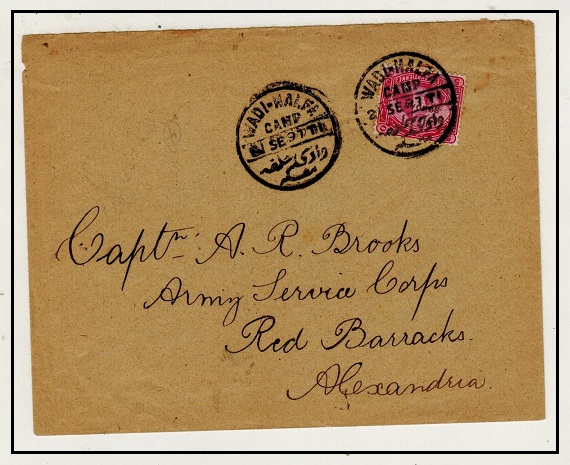 WADI-HALFA
CAMP
وادي حلفه
WADI-HALFA
CAMP
Captn. A. R. Brooks
Army Service Corps
Red Barracks.
Alexandria.